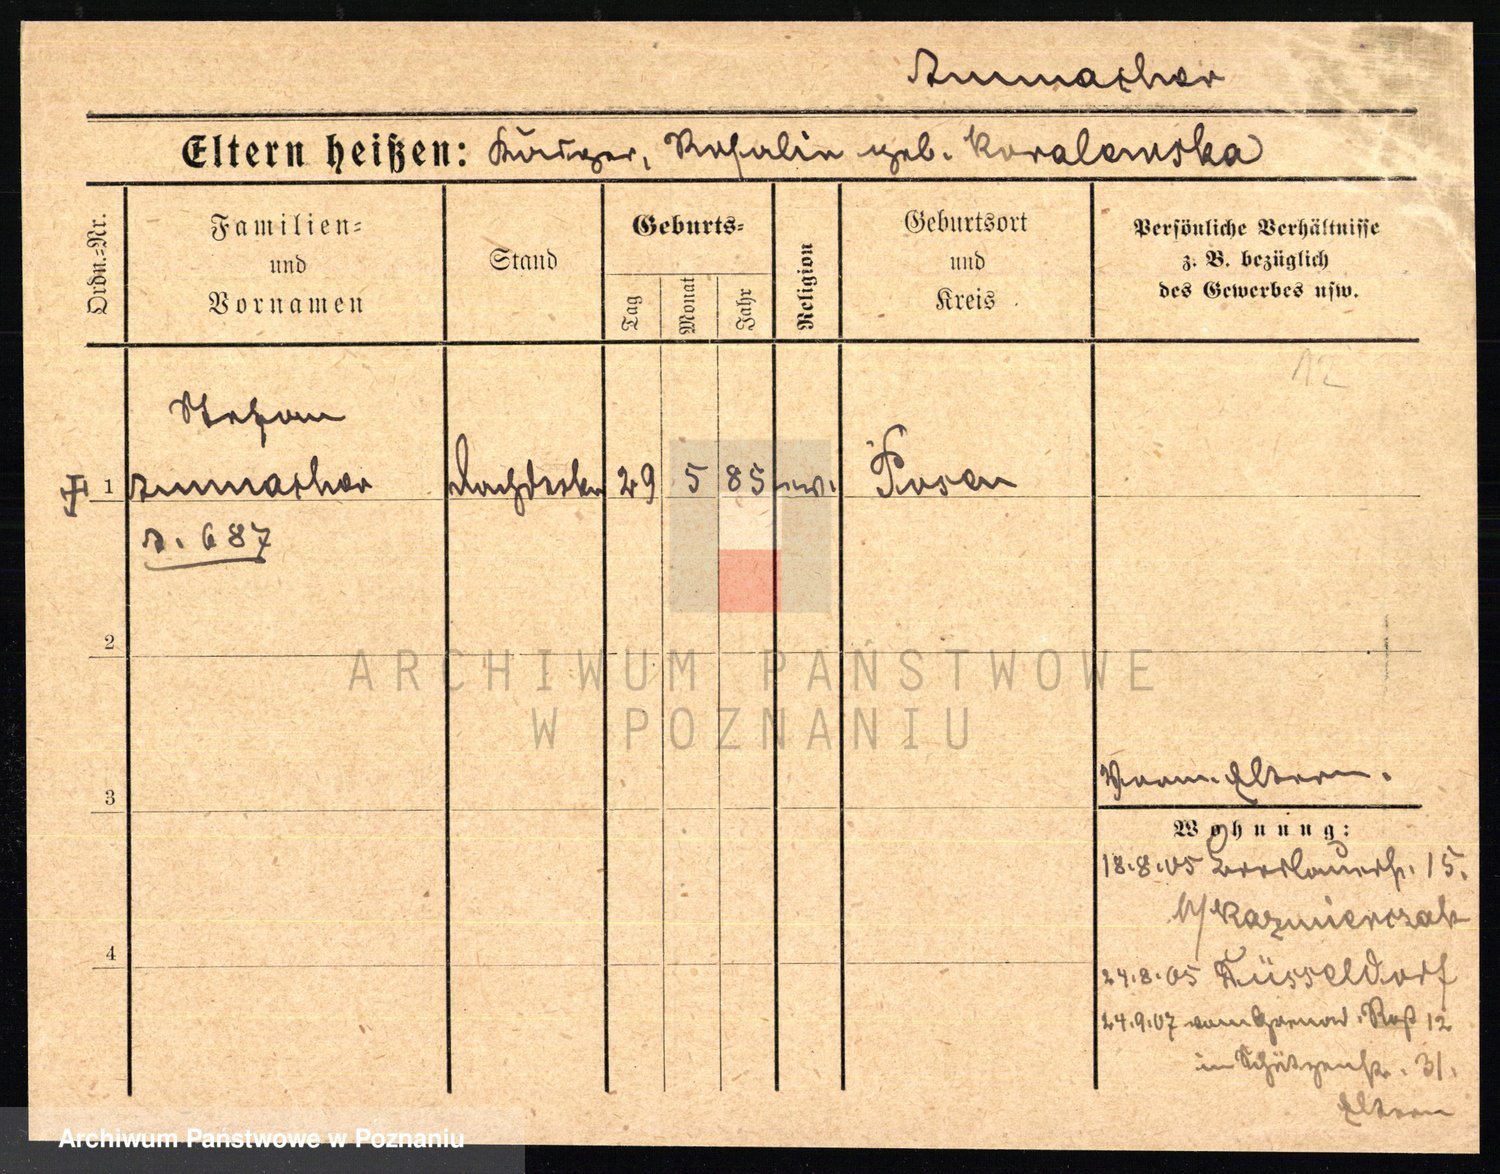 Ammacher
Eltern heißen: Rosalie geb. Koralewska
Ordn.-Nr.
Familien-
und
Vornamen
Stand
Geburts-
Tag
Monat
Jahr
Religion
Geburtsort
und
Kreis
Persönliche Verhältnisse
z. B. bezüglich
des Gewerbes usw.
12
Stefan
1 Ammacher Dachdecker 29 5 85 ev. Posen
s. 687
2
ARCHIWUM PAŃSTWOWE
W POZNANIU
3
Vorm. Eltern.
Wohnung:
18.8.05 Breslauerstr. 15.
b/ Kazmierczak
4
24.8.05 Düsseldorf
24.9.07 vom Rgt 12
in Schützenstr. 31.
Eltern
Archiwum Państwowe w Poznaniu